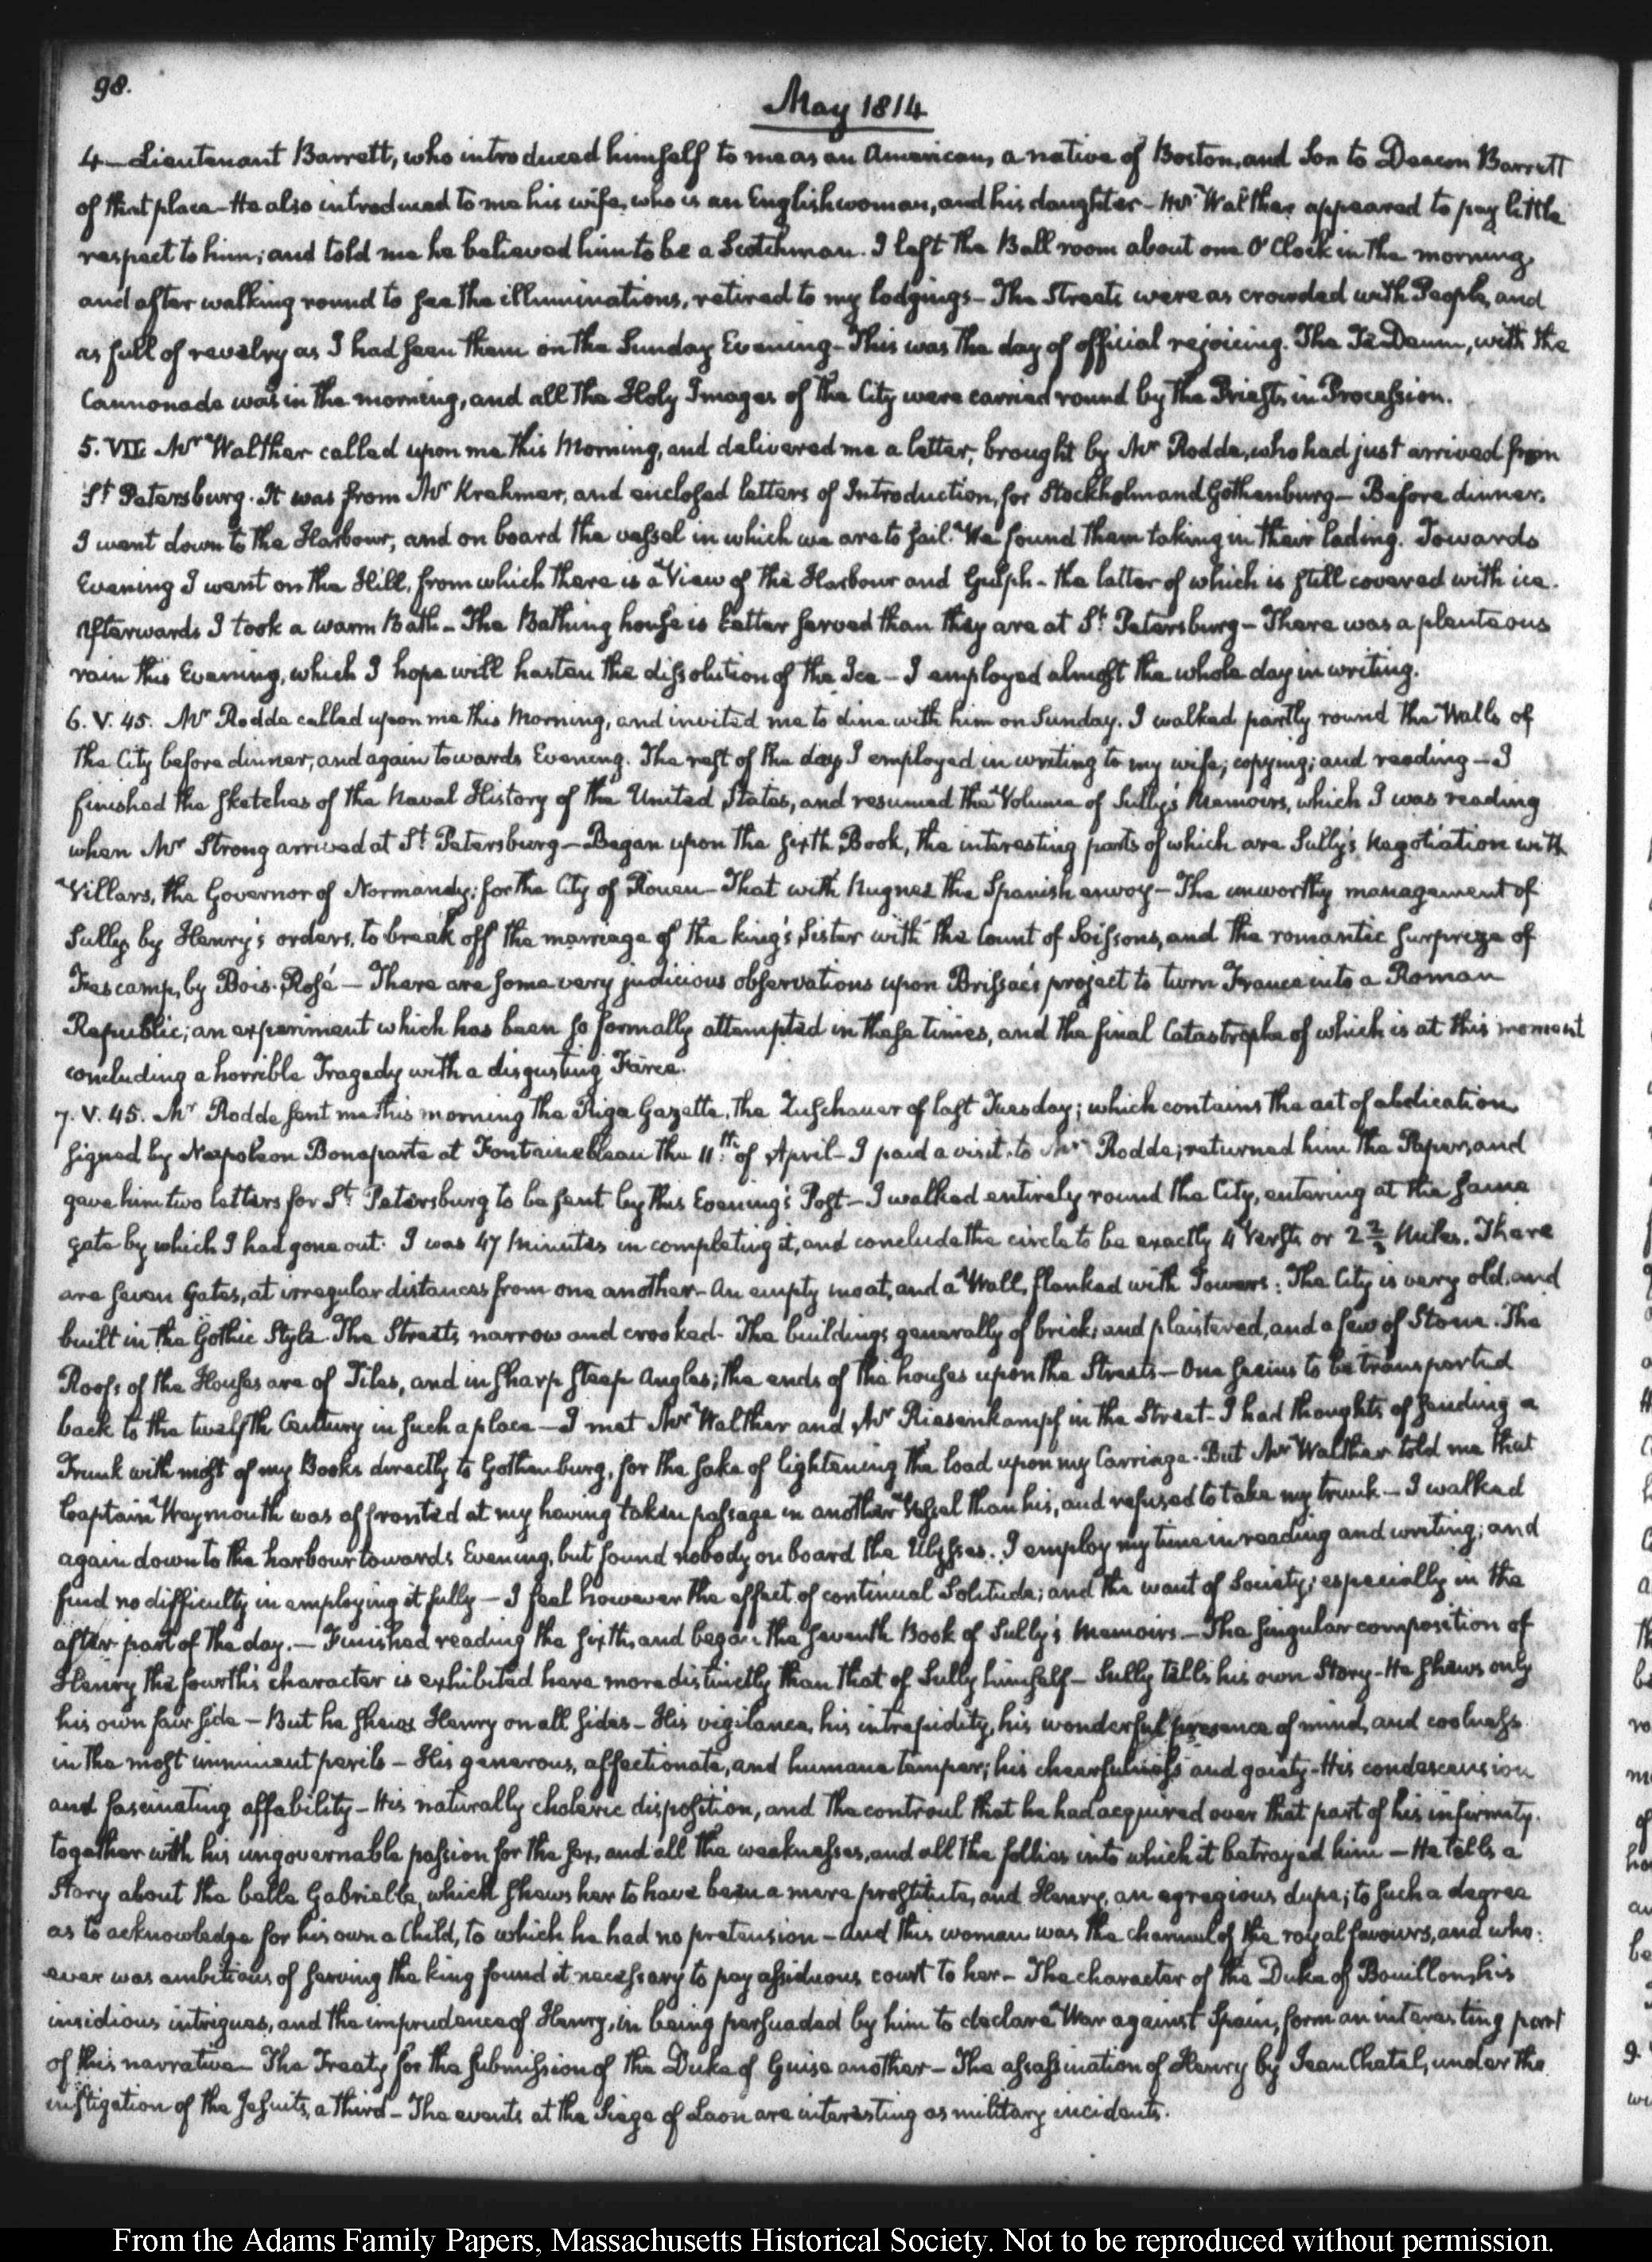 98.
May 1814
4 — Lieutenant Barrett, who introduced himself to me as an American, a native of Boston, and Son to Deacon Barrett
of that place — He also introduced to me his wife, who is an Englishwoman, and his daughter — Mr Walther appeared to pay little
respect to him; and told me he believed him to be a Scotchman. I left the Ball room about one O'Clock in the morning,
and after walking round to see the illuminations, retired to my lodgings — The Streets were as crowded with People, and
as full of revelry as I had seen them on the Sunday Evening — This was the day of official rejoicing. The Te Deum, with the
Cannonade was in the morning, and all the Holy Images of the City were carried round by the Priests in Procession.
5. VII. Mr Walther called upon me this Morning, and delivered me a letter, brought by Mr Rodde, who had just arrived from
St Petersburg. It was from Mr Krehmer, and enclosed letters of Introduction, for Stockholm and Gothenburg — Before dinner,
I went down to the Harbour, and on board the vessel in which we are to sail. We found them taking in their lading. Towards
Evening I went on the Hill, from which there is a View of the Harbour and Gulph — the latter of which is still covered with ice.
Afterwards I took a warm Bath — The Bathing house is better served than they are at St Petersburg — There was a plenteous
rain this Evening, which I hope will hasten the dissolution of the Ice — I employed almost the whole day in writing.
6. V. 45. Mr Rodde called upon me this Morning, and invited me to dine with him on Sunday. I walked partly round the Walls of
the City before dinner, and again towards Evening. The rest of the day I employed in writing to my wife; copying; and reading — I
finished the sketches of the Naval History of the United States, and resumed the Volume of Sully's Memoirs, which I was reading
when Mr Strong arrived at St Petersburg — Began upon the sixth Book, the interesting parts of which are Sully's Negotiation with
Villars, the Governor of Normandy; for the City of Rouen — That with Nugnez the Spanish envoy — The unworthy management of
Sully, by Henry's orders, to break off the marriage of the king's Sister with the Count of Soissons, and the romantic surprize of
Fescamp, by Bois-Rosé — There are some very judicious observations upon Brissac's project to turn France into a Roman
Republic; an experiment which has been so formally attempted in these times, and the final Catastrophe of which is at this moment
concluding a horrible Tragedy with a disgusting Farce.
7. V. 45. Mr Rodde sent me this morning the Riga Gazette, the Zuschauer of last Tuesday; which contains the act of abdication,
signed by Napoleon Bonaparte at Fontainebleau the 11th of April — I paid a visit to Mr Rodde; returned him the Papers, and
gave him two letters for St Petersburg to be sent by this Evening's Post — I walked entirely round the City, entering at the same
gate by which I had gone out. I was 47 minutes in completing it, and conclude the circle to be exactly 4 Versts or 2 2/3 Miles. There
are seven Gates, at irregular distances from one another — An empty moat, and a Wall, flanked with Towers. The City is very old, and
built in the Gothic Style. The Streets narrow and crooked. The buildings generally of brick, and plaistered, and a few of Stone. The
Roofs of the Houses are of Tiles, and in sharp steep Angles; the ends of the houses upon the Streets — One seems to be transported
back to the twelfth Century in such a place — I met Mr Walther and Mr Riesenkampf in the Street — I had thoughts of sending a
Trunk with most of my Books directly to Gothenburg, for the sake of lightening the load upon my Carriage. But Mr Walther told me that
Captain Weymouth was affronted at my having taken passage in another Vessel than his, and refused to take my trunk — I walked
again down to the harbour towards Evening, but found nobody on board the Ulysses. I employ my time in reading and writing; and
find no difficulty in employing it fully — I feel however the effect of continual Solitude; and the want of Society; especially in the
after part of the day. — Finished reading the sixth, and began the seventh Book of Sully's Memoirs — The singular composition of
Henry the fourth's character is exhibited here more distinctly than that of Sully himself — Sully tells his own Story — He shews only
his own fair side — But he shews Henry on all sides — His vigilance, his intrepidity, his wonderful presence of mind, and coolness
in the most imminent perils — His generous, affectionate, and humane temper; his cheerfulness and gaiety — His condescension
and fascinating affability — His naturally choleric disposition, and the controul that he had acquired over that part of his infirmity.
together with his ungovernable passion for the sex, and all the weaknesses, and all the follies into which it betrayed him — He tells a
Story about the belle Gabrielle, which shews her to have been a mere prostitute, and Henry, an egregious dupe; to such a degree
as to acknowledge for his own a Child, to which he had no pretension — And this woman was the channel of the royal favours, and who-
ever was ambitious of serving the king found it necessary to pay assiduous court to her — The character of the Duke of Bouillon, his
insidious intrigues, and the imprudence of Henry, in being persuaded by him to declare War against Spain, form an interesting part
of this narrative — The Treaty for the submission of the Duke of Guise another — The assassination of Henry by Jean Chatel, under the
instigation of the Jesuits, a third — The events at the Siege of Laon are interesting as military incidents.
From the Adams Family Papers, Massachusetts Historical Society. Not to be reproduced without permission.